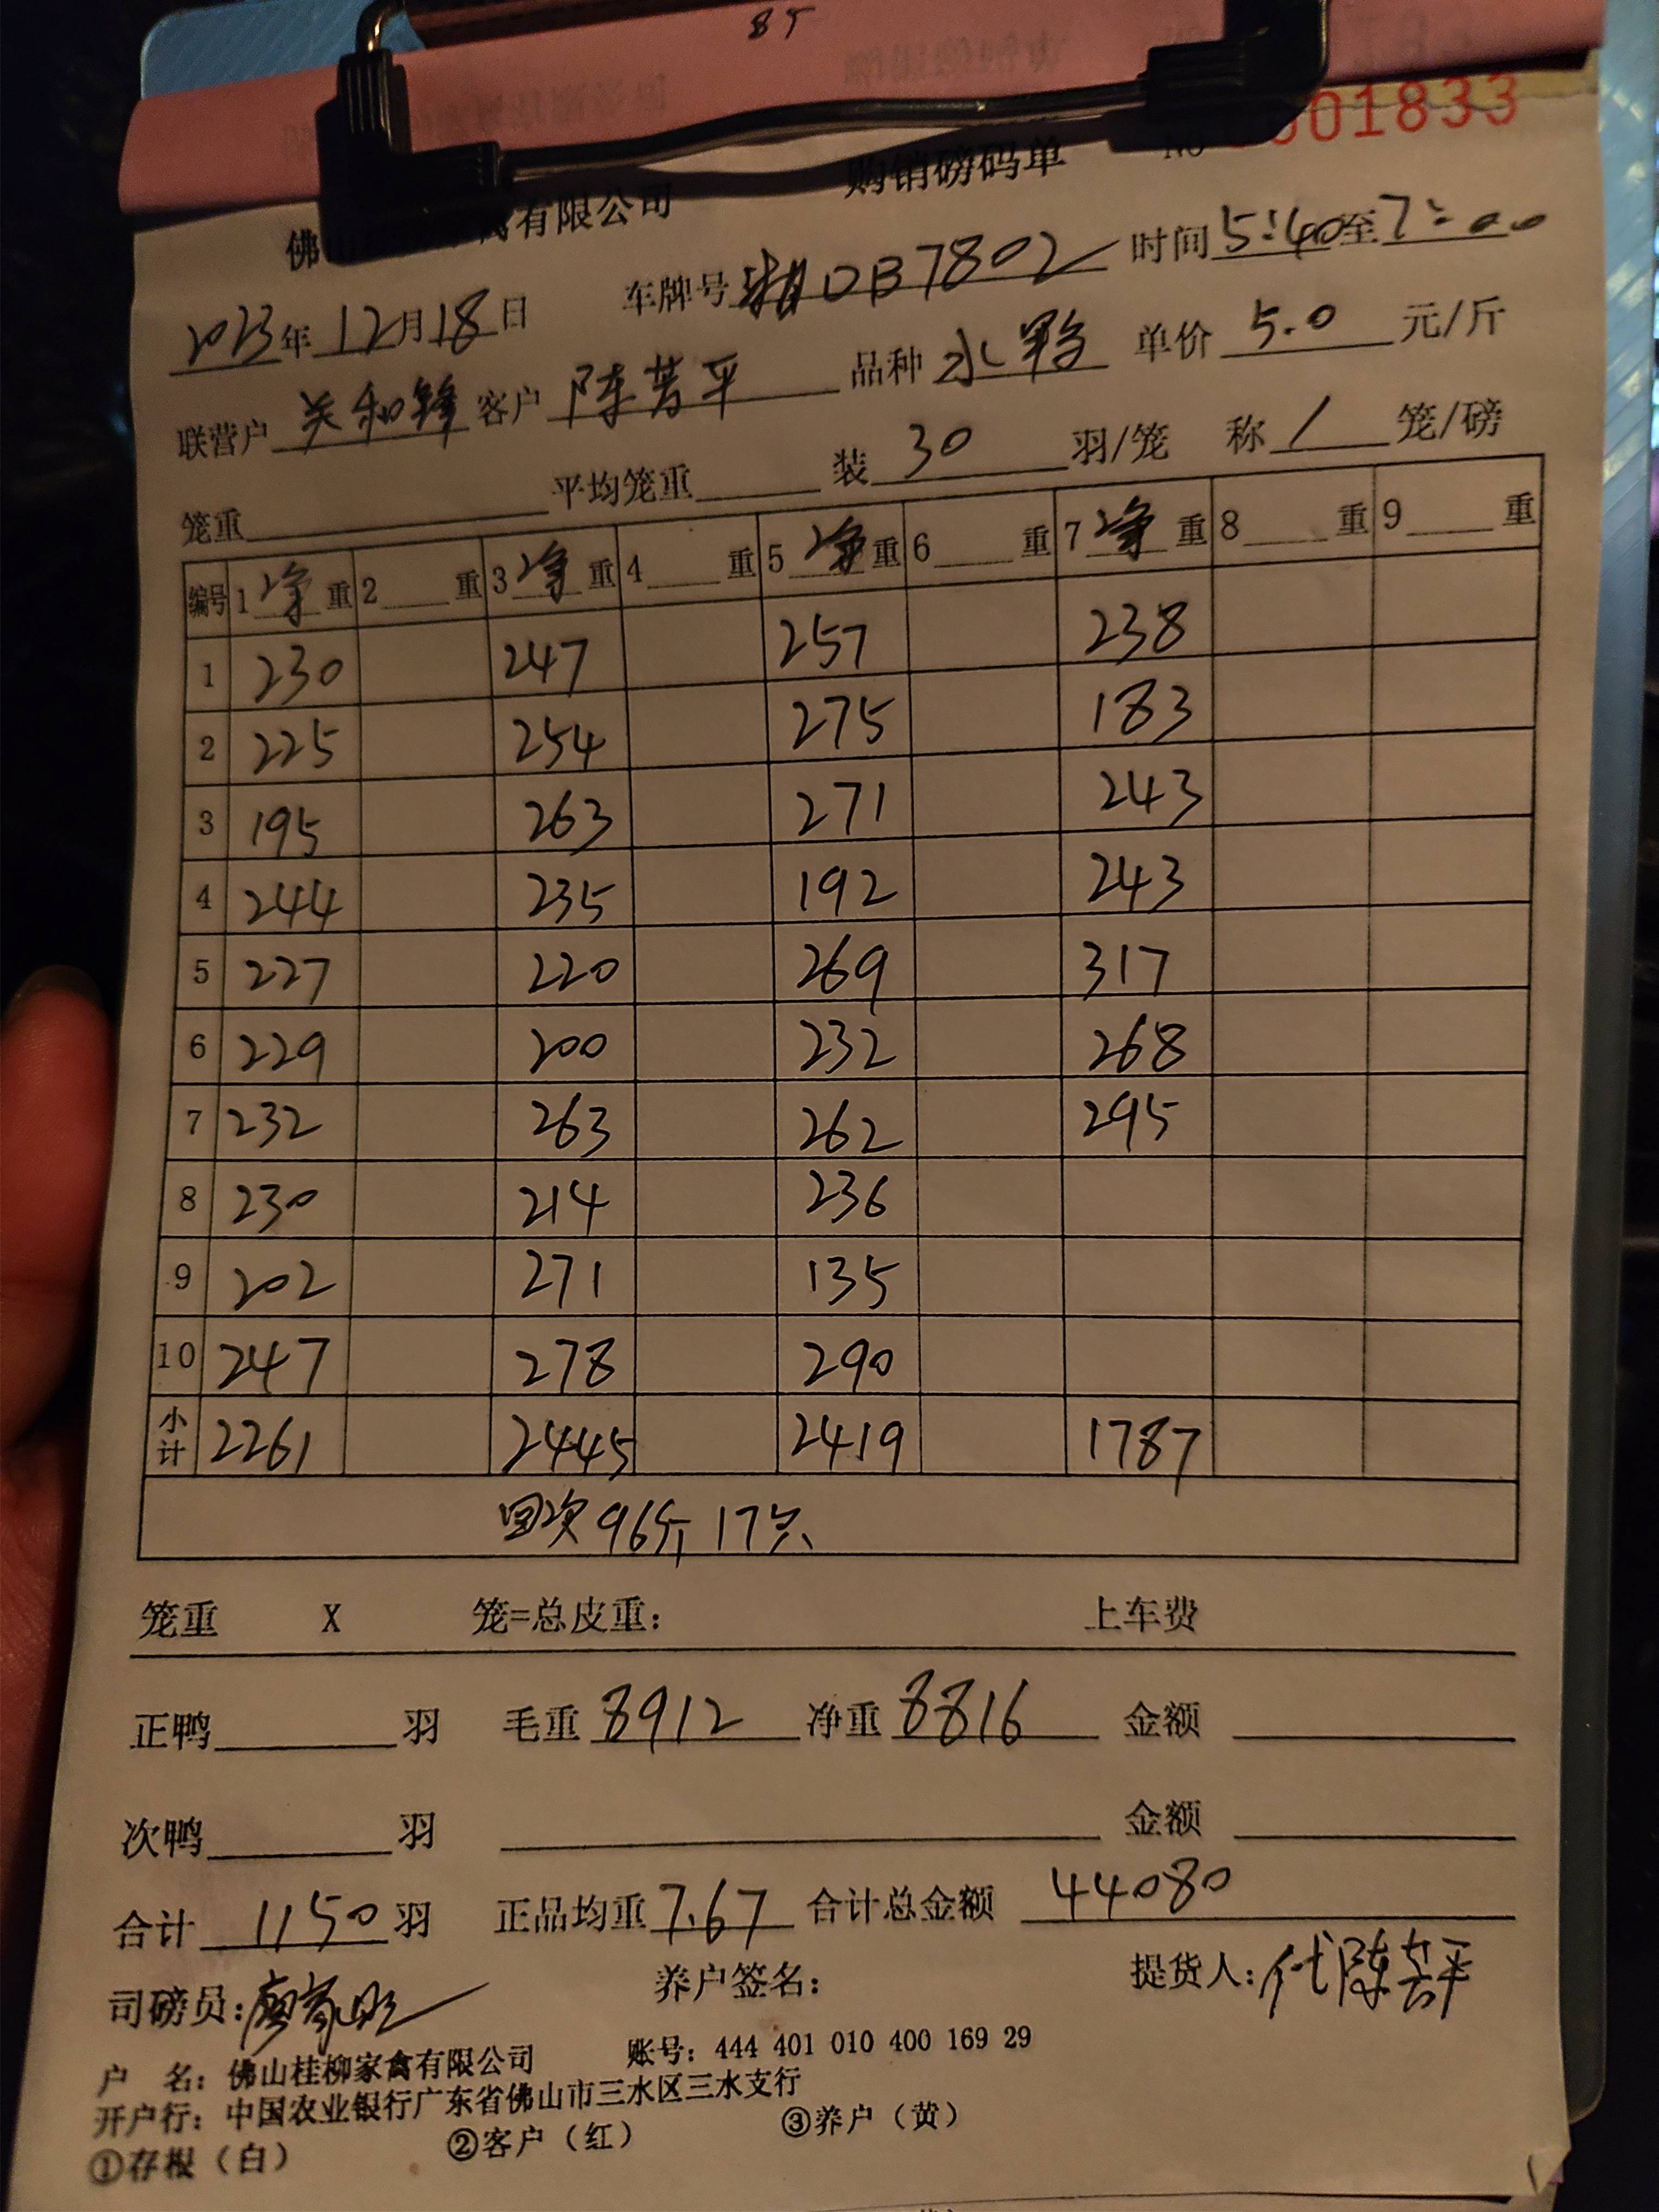 8T
购销磅码单 No 0001833
佛山 禽有限公司
2023年12月18日 车牌号 湘DB7802 时间5:40至7:00
联营户 关和锋 客户 陈芳平 品种 水 单价 5.0 元/斤
笼重 平均笼重 装 30 羽/笼 称 / 笼/磅
编号 1 净 重 2 重 3 净 重 4 重 5 净 重 6 重 7 净 重 8 重 9 重
1 230 247 257 238
2 225 254 275 183
3 195 263 271 243
4 244 235 192 243
5 227 220 269 317
6 229 200 232 268
7 232 263 262 295
8 230 214 236
9 202 271 135
10 247 278 290
小计 2261 2445 2419 1787
回次96斤17只
笼重 X 笼=总皮重: 上车费
正鸭 羽 毛重 8912 净重 8816 金额
次鸭 羽 金额
合计 1150 羽 正品均重 7.67 合计总金额 44080
司磅员: 养户签名: 提货人: 代陈芳平
户 名: 佛山桂柳家禽有限公司 账号: 444 401 010 400 169 29
开户行: 中国农业银行广东省佛山市三水区三水支行
①存根（白） ②客户（红） ③养户（黄）